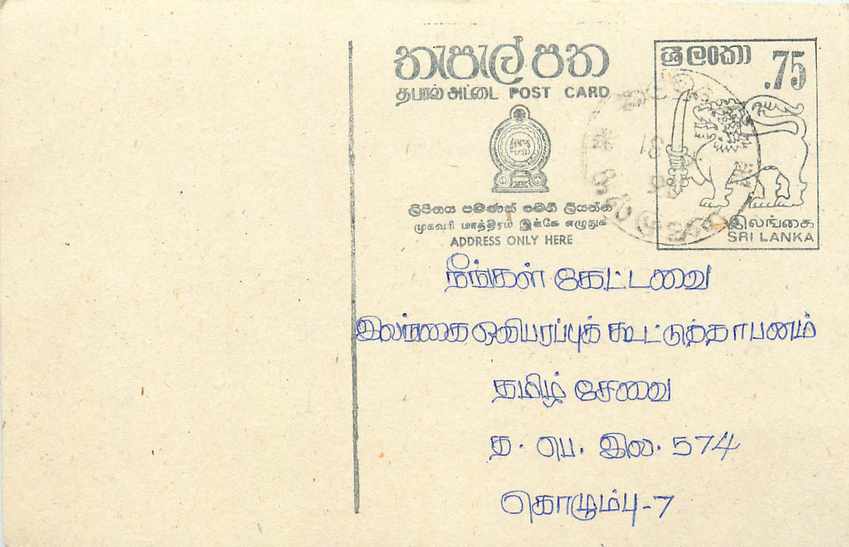 තැපැල් පත
தபால் அட்டை POST CARD
ශ්‍රී ලංකා
.75
ලිපිනය පමණක් පමණි ලියන්න
முகவரி மாத்திரம் இங்கே எழுதுக
ADDRESS ONLY HERE
இலங்கை
SRI LANKA
நீங்கள் கேட்டவை
இலங்கை ஒலிபரப்புக் கூட்டுத்தாபனம்
தமிழ் சேவை
த. பெ. இல. 574
கொழும்பு-7